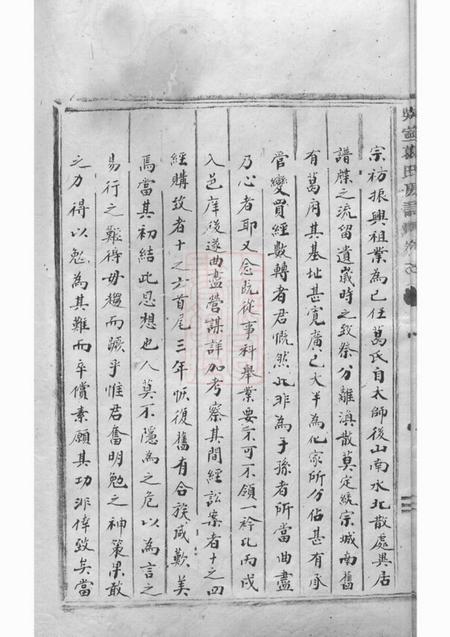 宗祊振興祖業為己任葛氏自太師後山南水北散處異居
譜牒之流留遺歲時之致祭分離渙散莫定統宗城南舊
有葛府其基址甚寬廣已大半為他家所分佔甚有承
管變買經數轉者君慨然此非為子孫者所當曲盡
乃心者耶又念既從事科舉業要不可不領一衿比丙戌
入邑庠後遂曲盡營謀詳加考察其間經訟案者十之四
經購致者十之六首尾三年恢復舊有合族咸歎美
焉當其初結此思想也人莫不隱為之危以為言之
易行之難得毋趨而蹶乎惟君奮明勉之神策果敢
之力得以勉為其難而卒償素願其功非倖致矣當